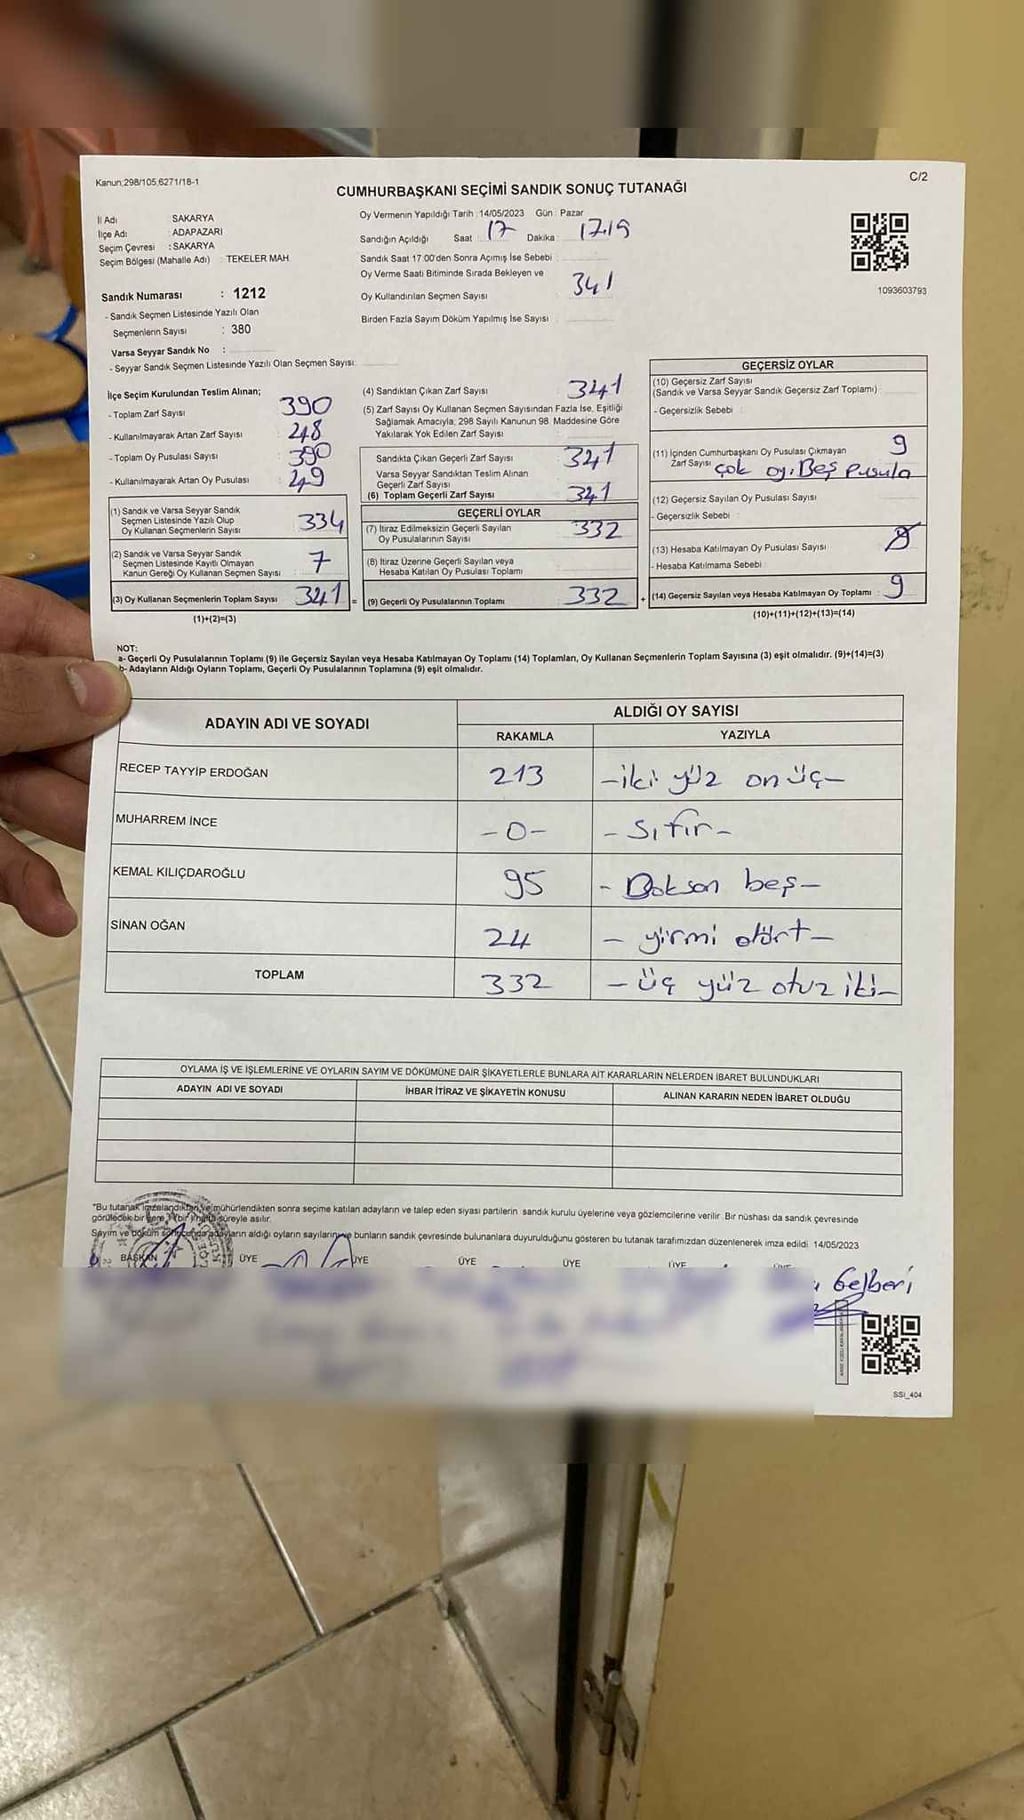 Kanun;298/105,6271/18-1
C/2
CUMHURBAŞKANI SEÇİMİ SANDIK SONUÇ TUTANAĞI
İl Adı SAKARYA
İlçe Adı : ADAPAZARI
Seçim Çevresi : SAKARYA
Seçim Bölgesi (Mahalle Adı) : TEKELER MAH.
Sandık Numarası : 1212
- Sandık Seçmen Listesinde Yazılı Olan
Seçmenlerin Sayısı : 380
Varsa Seyyar Sandık No :
- Seyyar Sandık Seçmen Listesinde Yazılı Olan Seçmen Sayısı:
Oy Vermenin Yapıldığı Tarih : 14/05/2023 Gün : Pazar
Sandığın Açıldığı Saat 17 Dakika : 17.19
Sandık Saat 17:00'den Sonra Açımış İse Sebebi :
Oy Verme Saati Bitiminde Sırada Bekleyen ve
Oy Kullandırılan Seçmen Sayısı 341
Birden Fazla Sayım Döküm Yapılmış İse Sayısı :
1093603793
İlçe Seçim Kurulundan Teslim Alınan;
- Toplam Zarf Sayısı 390
- Kullanılmayarak Artan Zarf Sayısı 248
- Toplam Oy Pusulası Sayısı 390
- Kullanılmayarak Artan Oy Pusulası 49
(1) Sandık ve Varsa Seyyar Sandık
Seçmen Listesinde Yazılı Olup
Oy Kullanan Seçmenlerin Sayısı 334
(2) Sandık ve Varsa Seyyar Sandık
Seçmen Listesinde Kayıtlı Olmayan
Kanun Gereği Oy Kullanan Seçmen Sayısı 7
(3) Oy Kullanan Seçmenlerin Toplam Sayısı 341 =
(1)+(2)=(3)
(4) Sandıktan Çıkan Zarf Sayısı 341
(5) Zarf Sayısı Oy Kullanan Seçmen Sayısından Fazla İse, Eşitliği
Sağlamak Amacıyla, 298 Sayılı Kanunun 98. Maddesine Göre
Yakılarak Yok Edilen Zarf Sayısı
Sandıkta Çıkan Geçerli Zarf Sayısı 341
Varsa Seyyar Sandıktan Teslim Alınan
Geçerli Zarf Sayısı
(6) Toplam Geçerli Zarf Sayısı 341
GEÇERLİ OYLAR
(7) İtiraz Edilmeksizin Geçerli Sayılan
Oy Pusulalarının Sayısı 332
(8) İtiraz Üzerine Geçerli Sayılan veya
Hesaba Katılan Oy Pusulası Toplamı
(9) Geçerli Oy Pusulalarının Toplamı 332 +
GEÇERSİZ OYLAR
(10) Geçersiz Zarf Sayısı
(Sandık ve Varsa Seyyar Sandık Geçersiz Zarf Toplamı)
- Geçersizlik Sebebi :
(11) İçinden Cumhurbaşkanı Oy Pusulası Çıkmayan
Zarf Sayısı 9
çok oy, Beş pusula
(12) Geçersiz Sayılan Oy Pusulası Sayısı
- Geçersizlik Sebebi :
(13) Hesaba Katılmayan Oy Pusulası Sayısı
- Hesaba Katılmama Sebebi :
(14) Geçersiz Sayılan veya Hesaba Katılmayan Oy Toplamı : 9
(10)+(11)+(12)+(13)=(14)
NOT:
a- Geçerli Oy Pusulalarının Toplamı (9) ile Geçersiz Sayılan veya Hesaba Katılmayan Oy Toplamı (14) Toplamları, Oy Kullanan Seçmenlerin Toplam Sayısına (3) eşit olmalıdır. (9)+(14)=(3)
b- Adayların Aldığı Oyların Toplamı, Geçerli Oy Pusulalarının Toplamına (9) eşit olmalıdır.
ADAYIN ADI VE SOYADI ALDIĞI OY SAYISI
RAKAMLA YAZIYLA
RECEP TAYYİP ERDOĞAN 213 -iki yüz on üç-
MUHARREM İNCE -0- -sıfır-
KEMAL KILIÇDAROĞLU 95 -Doksan beş-
SİNAN OĞAN 24 -yirmi dört-
TOPLAM 332 -üç yüz otuz iki-
OYLAMA İŞ VE İŞLEMLERİNE VE OYLARIN SAYIM VE DÖKÜMÜNE DAİR ŞİKAYETLERLE BUNLARA AİT KARARLARIN NELERDEN İBARET BULUNDUKLARI
ADAYIN ADI VE SOYADI İHBAR İTİRAZ VE ŞİKAYETİN KONUSU ALINAN KARARIN NEDEN İBARET OLDUĞU
*Bu tutanak imzalandıktan ve mühürlendikten sonra seçime katılan adayların ve talep eden siyasi partilerin sandık kurulu üyelerine veya gözlemcilerine verilir. Bir nüshası da sandık çevresinde
görülecek bir yere 1 (bir) hafta süreyle asılır.
Sayım ve döküm sonucunda adayların aldığı oyların sayılarını ve bunların sandık çevresinde bulunanlara duyurulduğunu gösteren bu tutanak tarafımızdan düzenlenerek imza edildi. 14/05/2023
BAŞKAN ÜYE ÜYE ÜYE ÜYE ÜYE ÜYE
Gelberi
SSI_404